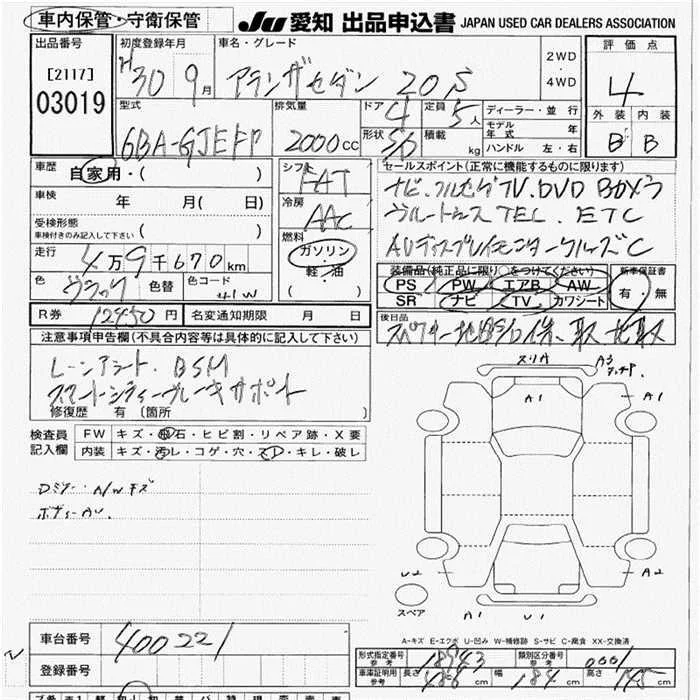 車内保管・守衛保管 JU 愛知 出品申込書 JAPAN USED CAR DEALERS ASSOCIATION
出品番号 初度登録年月 車名・グレード 2WD・4WD 評価点
[2117] H30 9月 アテンザセダン 20S 4
03019
型式 排気量 ドア 4 定員 5人 ディーラー・並行 外装 内装
6BA-GJEFP 2000cc 形状 積載 kg モデル年式 年 B B
ハンドル 左・右
車歴 自家用・( ) シフト FAT セールスポイント(正常に機能するものに限ります)
車検 年 月( 日) 冷房 AAC ナビ.フルセグTV.DVD BOXラ
受検形態 ( ) ブルートゥース TEL. ETC
車検付きのみ記入して下さい 燃料 AVディスプレイモニタークルーズC
走行 4万9千670km ガソリン・軽・油 ( ) 装備品(純正品に限り○をつけてください) 新車保証書
色 ブラック 色替 色コード 41W PS PW エアB AW 有・無
SR ナビ TV カワシート
R券 12450円 名変通知期限 月 日 後日品
注意事項申告欄(不具合内容等は具体的に記入して下さい)
レーンアシート. BSM
スマートシティーブレーキサポート
修復歴 有 (箇所 )
検査員記入欄 FW キズ・飛石・ヒビ割・リペア跡・X要
内装 キズ・汚レ・コゲ・穴・スレ・キレ・破レ
Dミラー・A/Wキズ
ボディーAU.
スリA A3 タッチP
A1 A1
U2 A2
スペア A1 U1
A-キズ E-エクボ U-凹み W-補修跡 S-サビ C-腐食 XX-交換済
車台番号 400221 形式指定番号 参考 18943 類別区分番号 参考 0001
登録番号 車庫証明用 参考 長さ 486cm 幅 184cm 高さ 145cm